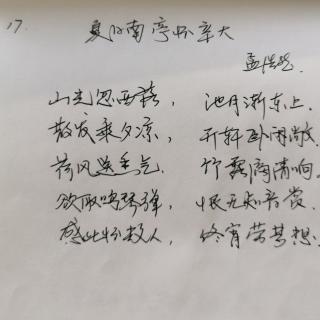 17.
夏日南亭怀辛大
孟浩然
山光忽西落，池月渐东上.
散发乘夕凉，开轩卧闲敞.
荷风送香气.竹露滴清响.
欲取鸣琴弹，恨无知音赏.
感此怀故人，终宵劳梦想.